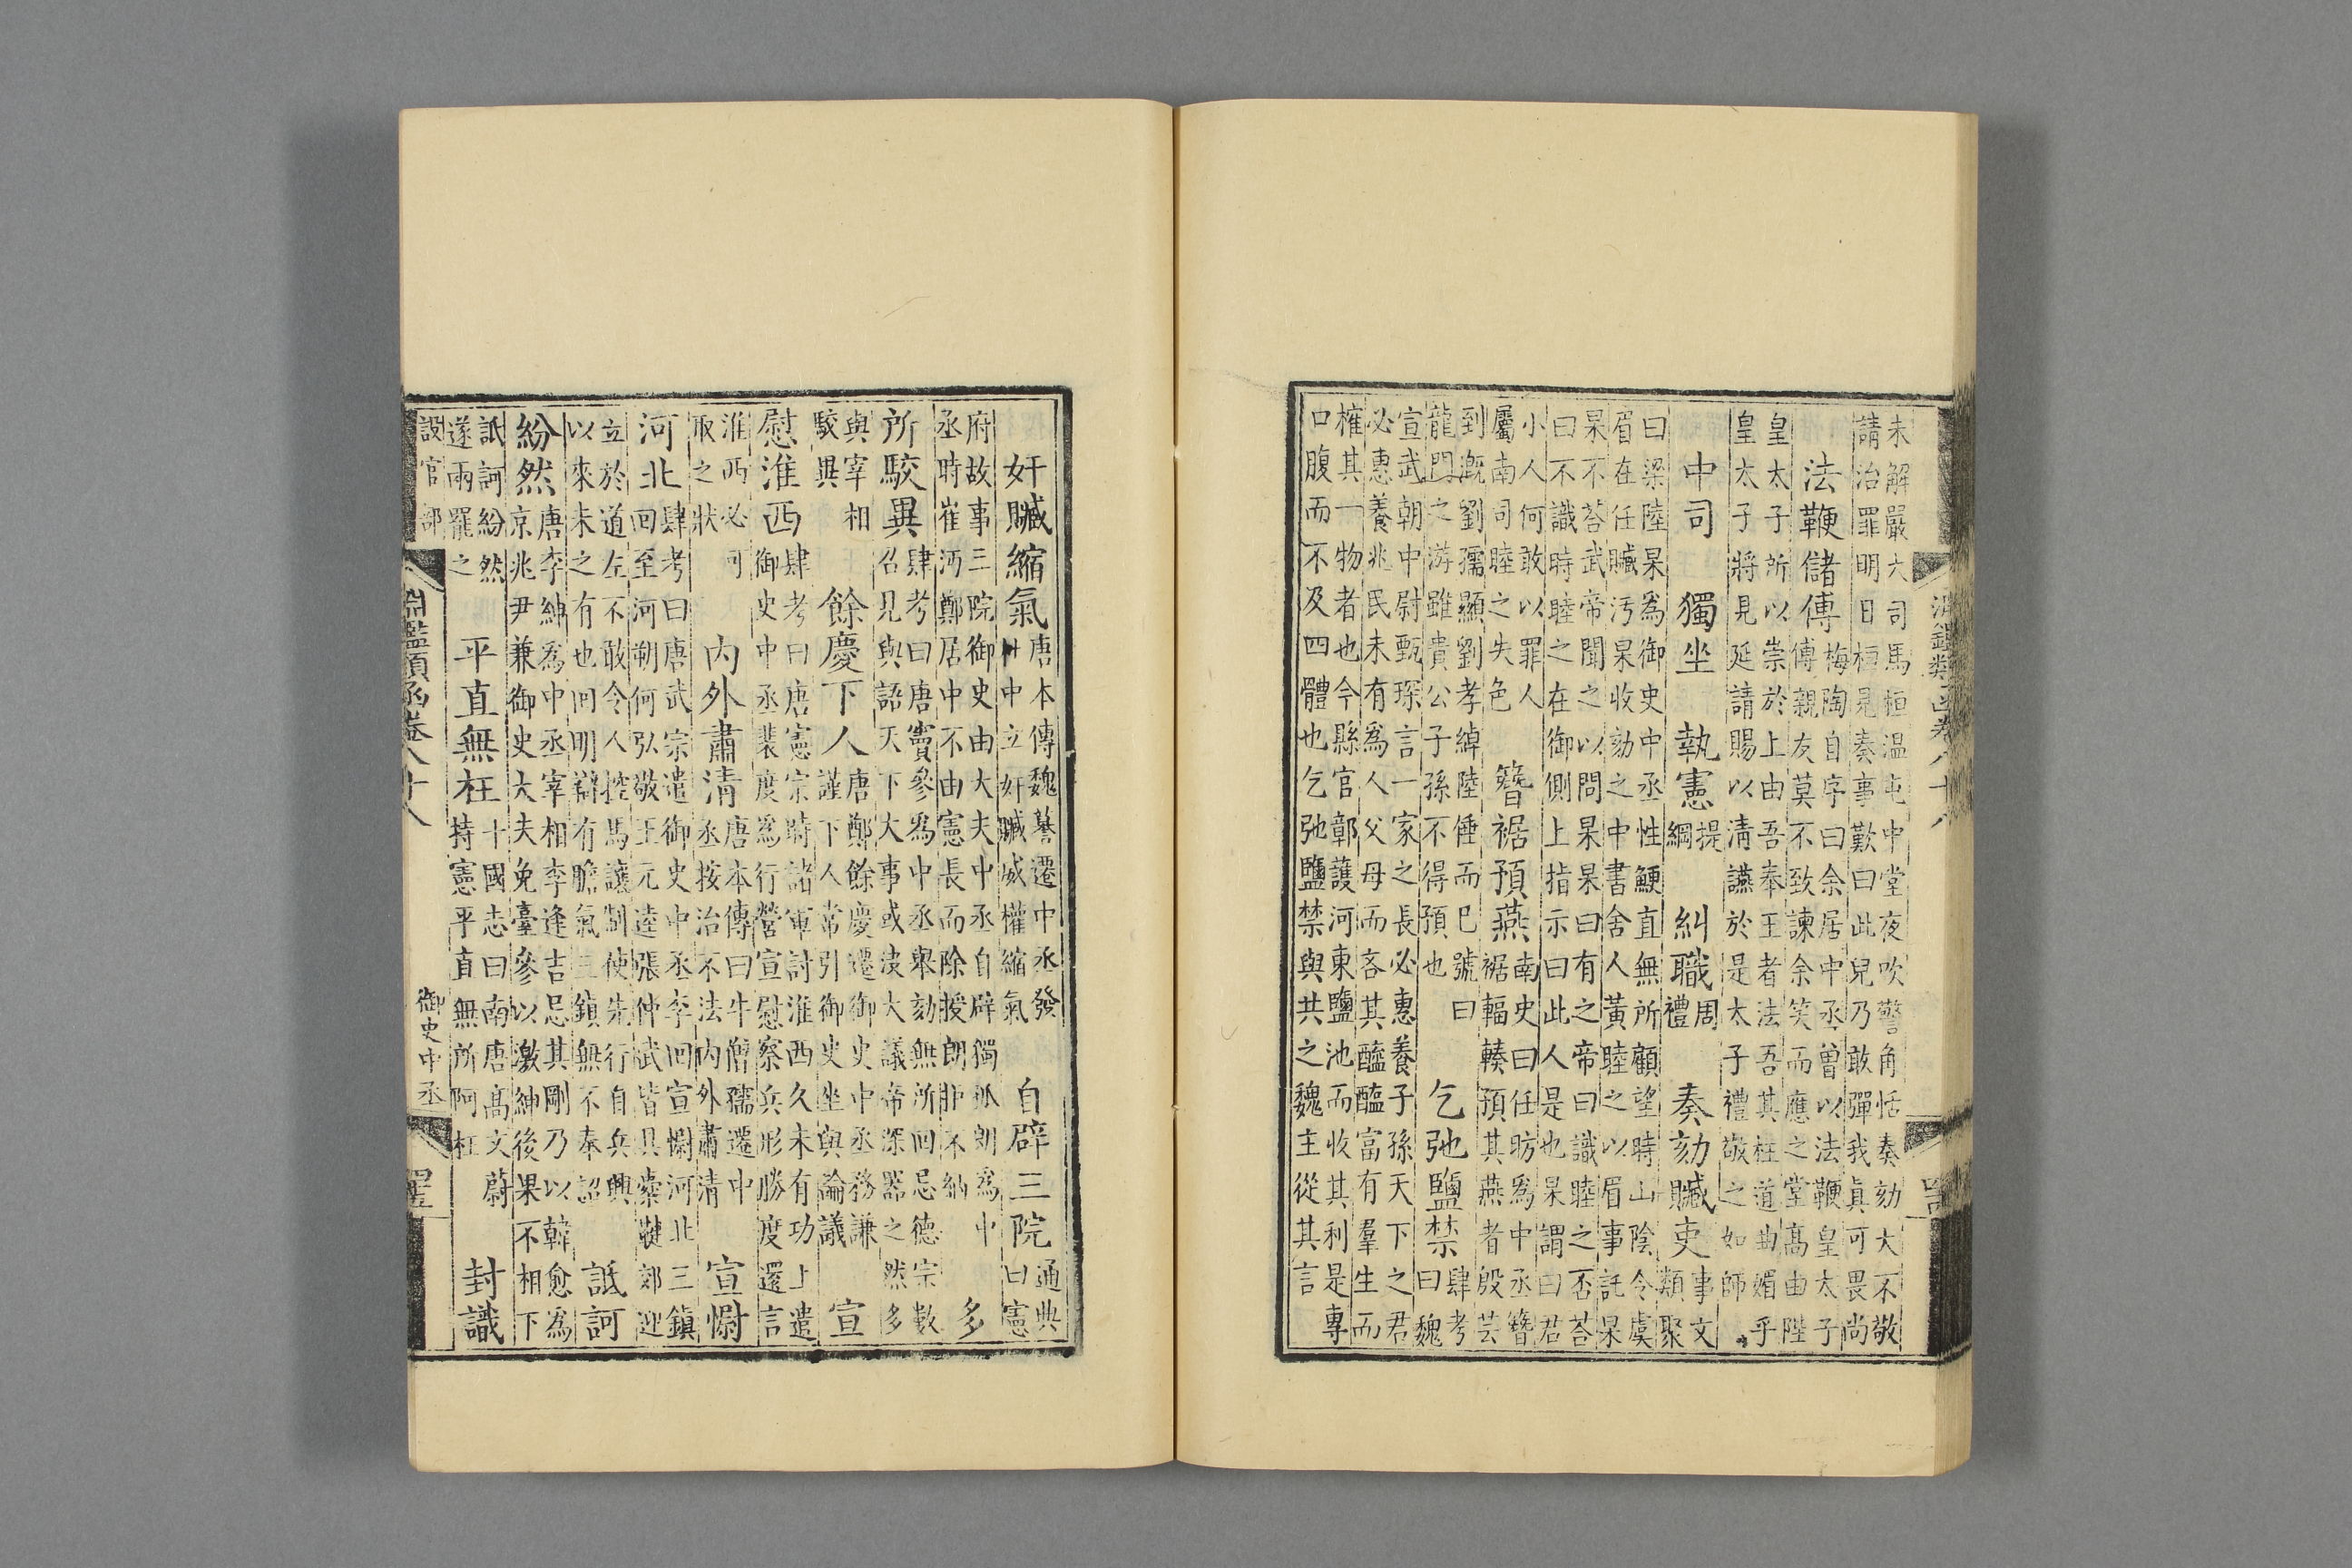 未解嚴大司馬桓溫屯中堂夜吹警角恬奏劾大不敬
請治罪明日桓見奏事歎曰此兒乃敢彈我眞可畏尚
法鞭儲傅
梅陶自序曰余居中丞曽以法鞭皇太子
傅親友莫不致諫余笑而應之堂高由陛
皇太子所以崇於上由吾奉王者法吾其枉道曲媚乎
皇太子將見延請賜以清讌於是太子禮敬之如師
中司　獨坐　執憲
提
綱
糾職
周
禮
奏劾贓吏
事文
類聚
曰梁陸杲爲御史中丞性鯁直無所顧望時山陰令虞
眉在任贓污杲收劾之中書舍人黃睦之以眉事託杲
杲不荅武帝聞之以問杲杲曰有之帝曰識睦之否荅
曰不識時睦之在御側上指示曰此人是也杲謂曰君
小人何敢以罪人
屬南司睦之失色
簪裾預燕
南史曰任昉爲中丞簪
裾輻輳預其燕者殷芸
到溉劉孺顯劉孝綽陸倕而巳號曰
龍門之游雖貴公子孫不得預也
乞弛鹽禁
肆考
曰魏
宣武朝中尉甄琛言一家之長必惠養子孫天下之君
必惠養兆民未有爲人父母而吝其醯醢富有羣生而
榷其一物者也今縣官鄣護河東鹽池而收其利是專
口腹而不及四體也乞弛鹽禁與共之魏主從其言
奸贓縮氣
唐本傳魏謩遷中丞發
中立奸贓威權縮氣
自辟三院
通典
曰憲
府故事三院御史由大夫中丞自辟獨孤朗爲中
丞時崔沔鄭居中不由憲長而除授朗拒不納
多
所駮異
肆考曰唐竇參爲中丞舉劾無所回忌德宗數
召見與語天下大事或決大議帝深器之然多
與宰相
駮異
餘慶下人
唐鄭餘慶遷御史中丞務謙
謹下人常引御史坐與論議
宣
慰淮西
肆考曰唐憲宗時諸軍討淮西久未有功上遣
御史中丞裴度爲行營宣慰察兵形勝度還言
淮西必可
取之狀
内外肅清
唐本傳曰牛僧孺遷中
丞按治不法内外肅清
宣慰
河北
肆考曰唐武宗遣御史中丞李回宣慰河北三鎮
回至河朔何弘敬王元逵張仲武皆具櫜鞬郊迎
立於道左不敢令人控馬讓制使先行自兵興
以來未之有也回明辯有膽氣三鎮無不奉詔
詆訶
紛然
唐李紳爲中丞宰相李逢吉忌其剛乃以韓愈爲
京兆尹兼御史大夫免臺參以激紳後果不相下
詆訶紛然
遂兩罷之
平直無枉
十國志曰南唐高文蔚
持憲平直無所阿枉
封識
設官部
淵鑑類函卷八十八
御史中丞